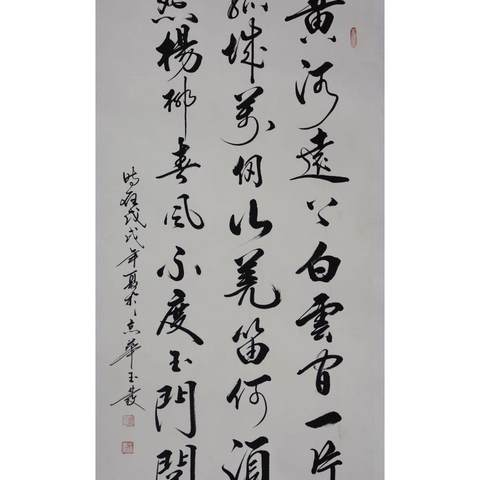 黃河遠上白雲間一片
孤城萬仞山羌笛何須
怨楊柳春風不度玉門關
時在戊戌年夏於京華玉